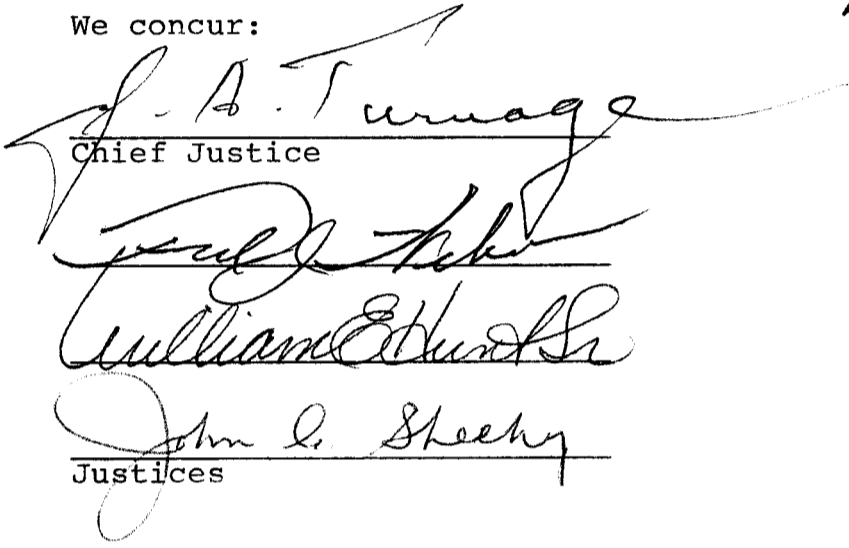 We concur:
J. A. Turnage
Chief Justice
William E Hunt Sr
John C. Sheehy
Justices